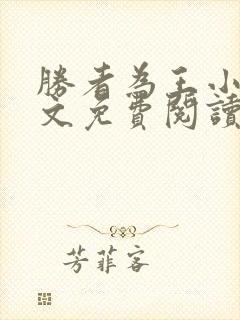 勝者為王小
文免費閱讀
芳菲客